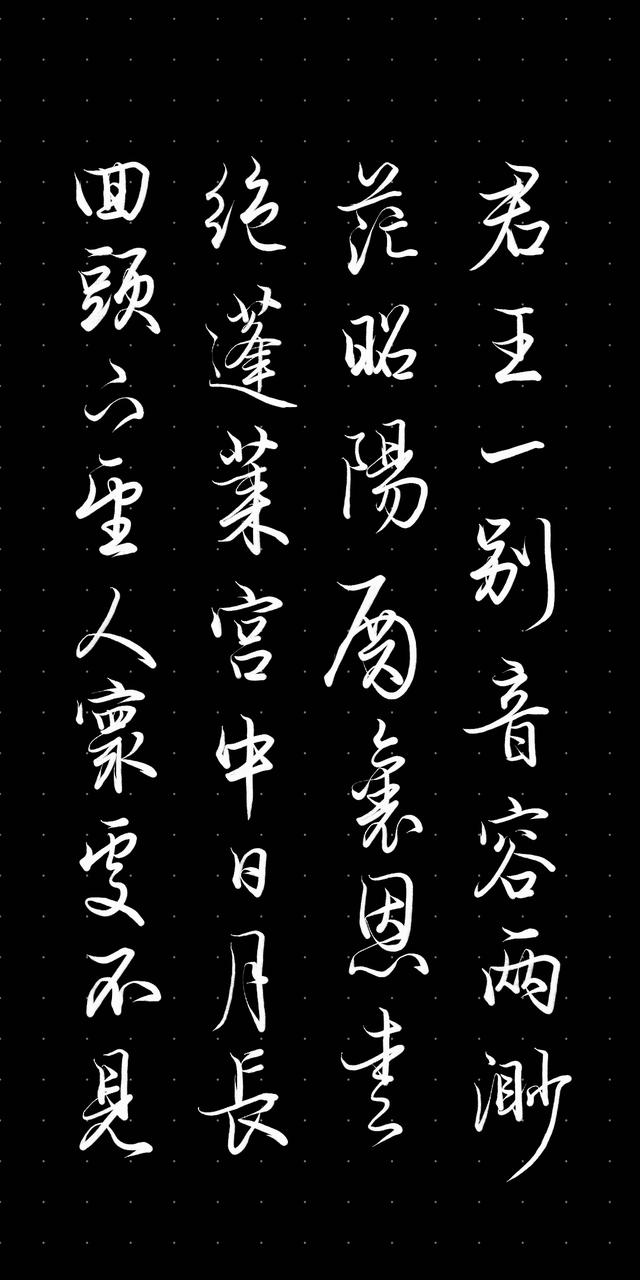 君王一别音容两渺
茫昭陽殿裏恩愛
絶蓬萊宮中日月長
回頭下望人寰處不見